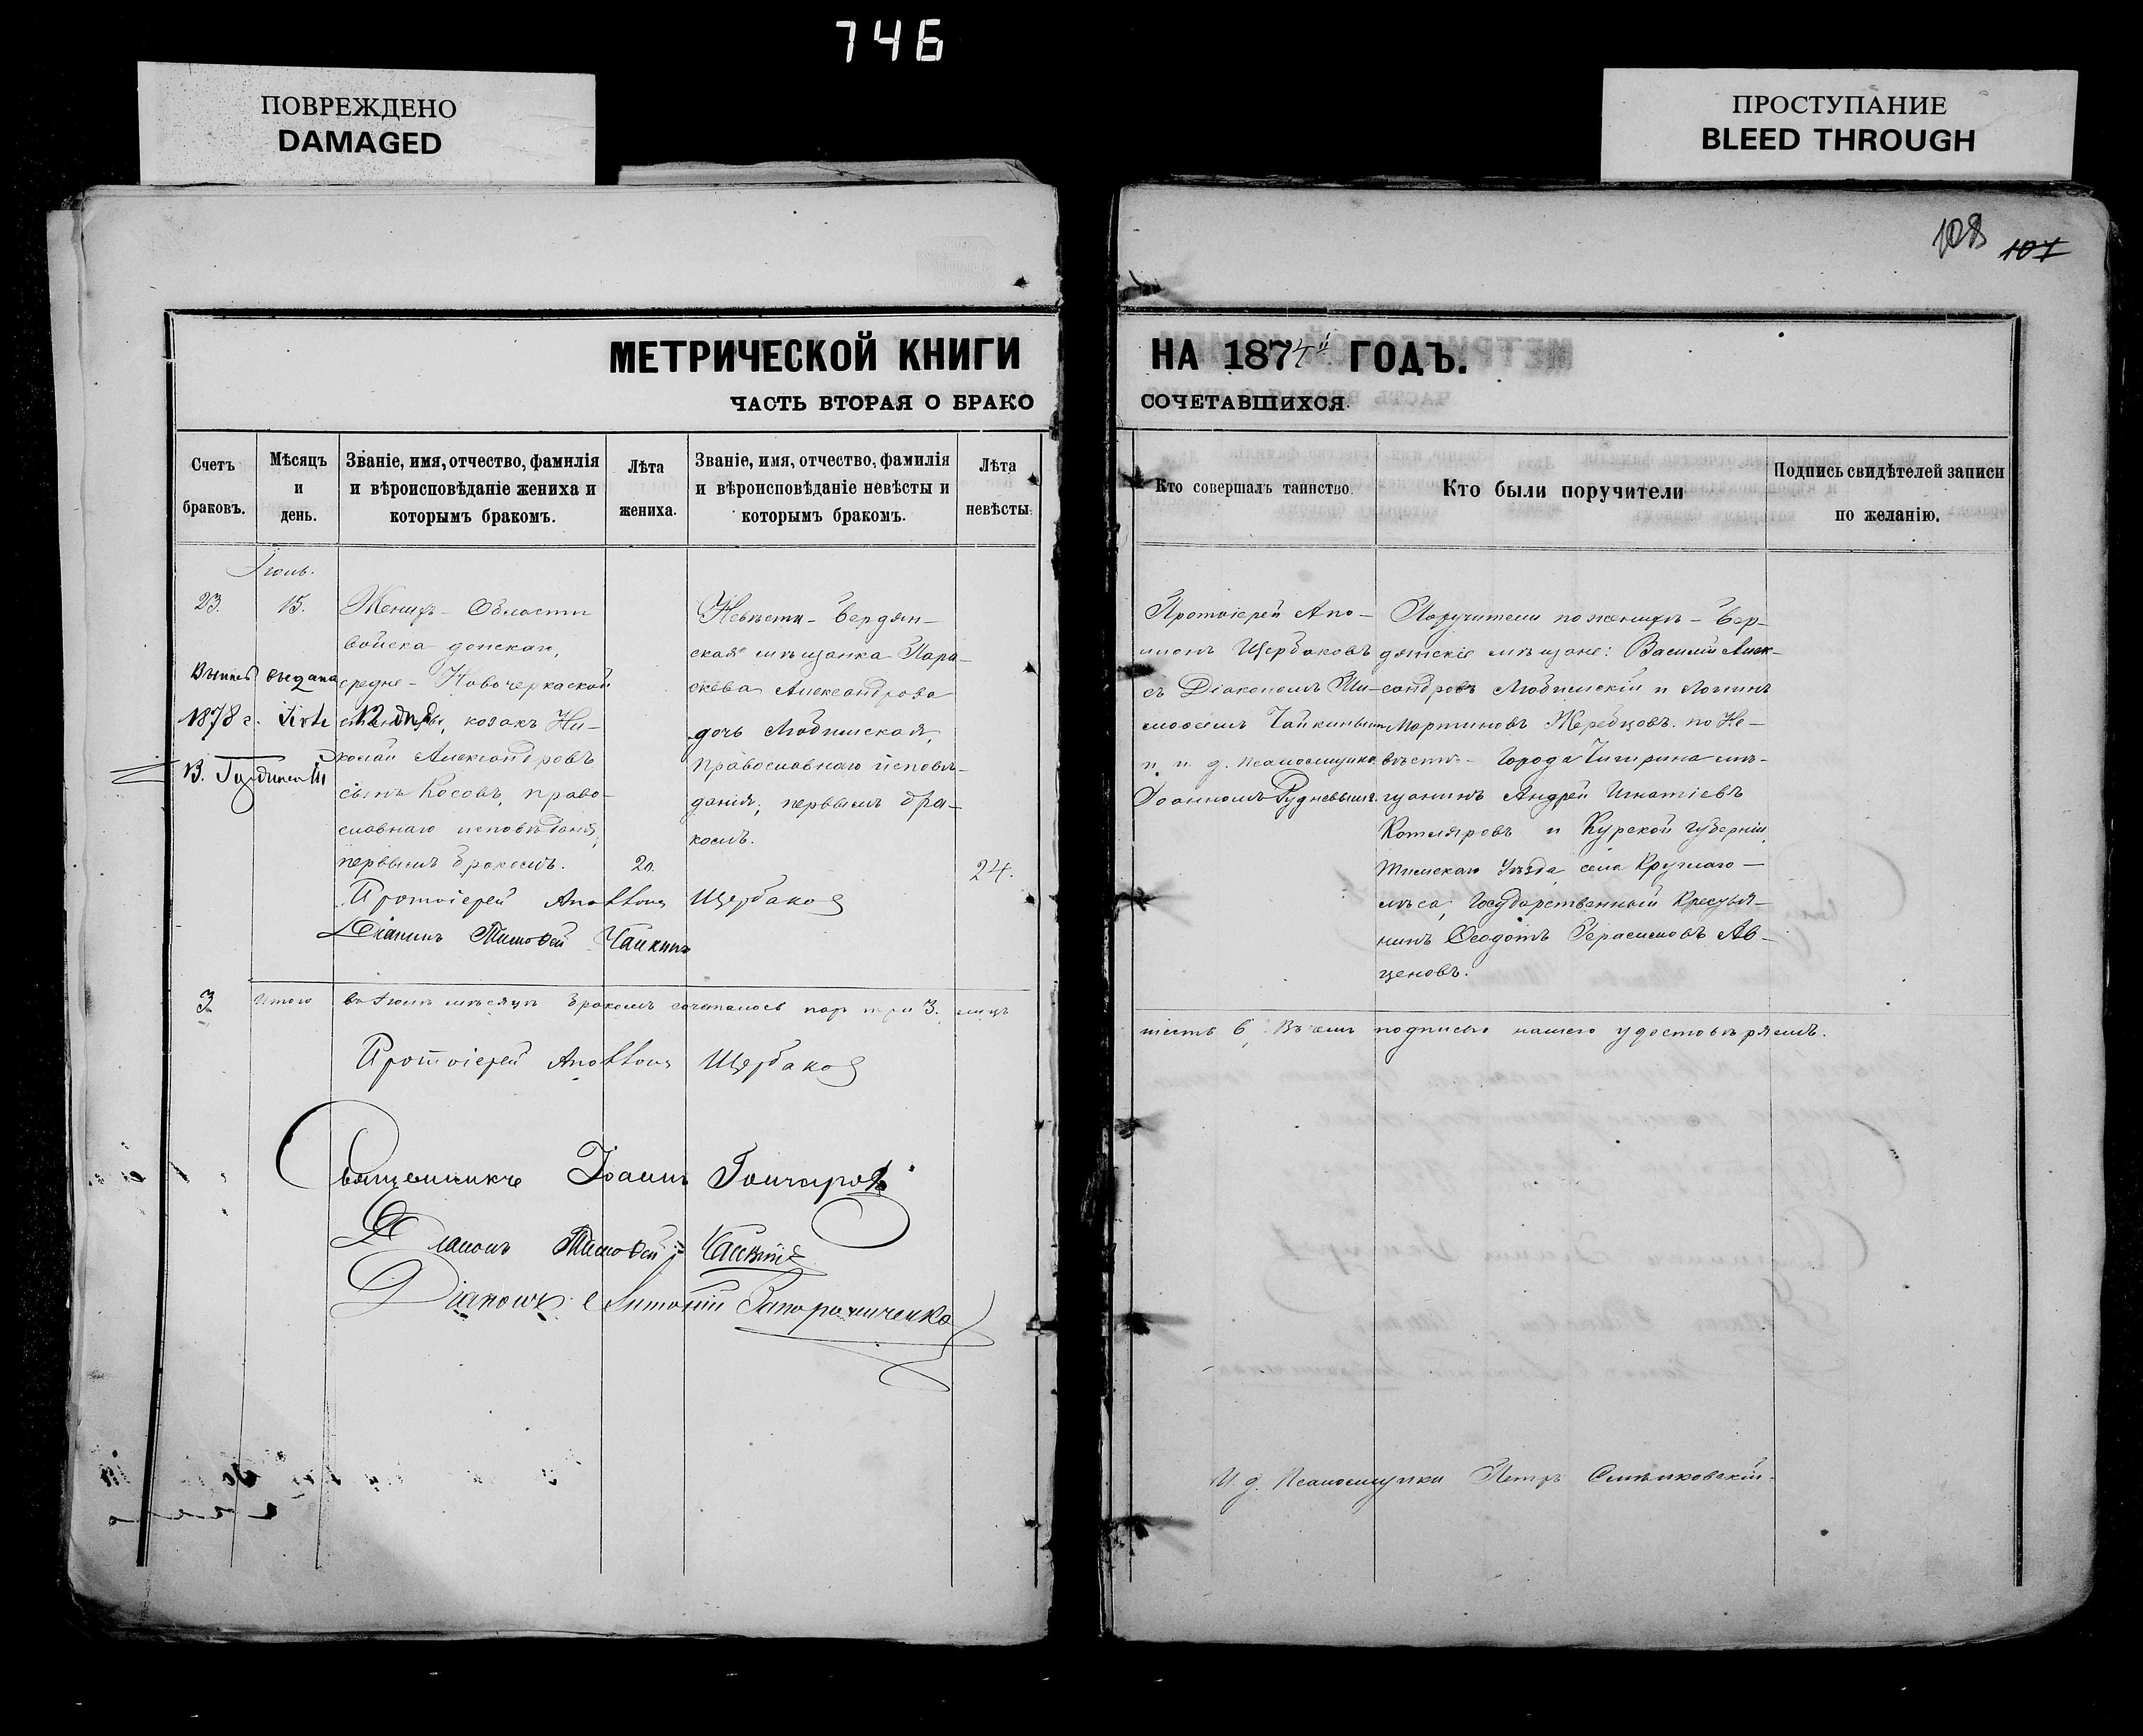 746
ПОВРЕЖДЕНО
DAMAGED
ПРОСТУПАНИЕ
BLEED THROUGH
108 107
МЕТРИЧЕСКОЙ КНИГИ
НА 1874й ГОДЪ.
ЧАСТЬ ВТОРАЯ О БРАКО
СОЧЕТАВШИХСЯ.
Счетъ
браковъ.
Мѣсяцъ
и
день.
Званіе, имя, отчество, фамилія
и вѣроисповѣданіе жениха и
которымъ бракомъ.
Лѣта
жениха.
Званіе, имя, отчество, фамилія
и вѣроисповѣданіе невѣсты и
которымъ бракомъ.
Лѣта
невѣсты.
Кто совершалъ таинство.
Кто были поручители
Подпись свидѣтелей записи
по желанію.
Іюнь.
23.
15.
Выпись выдана
1878 г.
Женихъ – Области
войска донскаго,
средне – Новочеркаской
козакъ Ни-
колай Александровъ
сынъ Косовъ, право-
славнаго исповѣданія,
первымъ бракомъ.
20.
Невѣста – Бердян-
ская мѣщанка Пара-
скева Александрова
дочь Любимская,
православнаго исповѣ-
данія, первымъ бра-
комъ.
24.
Протоіерей Аполлонъ Щербаковъ
Діаконъ Тимофей Чайкинъ
Протоіерей Апо-
лонъ Щербаковъ
съ Діакономъ Ти-
мофеемъ Чайкинымъ
и и. д. псаломщика
Іоанномъ Рудневымъ.
Поручители по женихѣ – Бер-
дянскіе мѣщане: Василій Алек-
сандровъ Любимскій и Логинъ
Мартиновъ Жеребцовъ. по Не-
вѣстѣ – Города Чигирина мѣ-
щанинъ Андрей Игнатіевъ
Котляровъ и Курской губерніи,
Тимскаго уѣзда, села Круглаго –
лѣса, Государственный Крестья-
нинъ Ѳеодотъ Герасимовъ Ав-
деновъ.
3 Итого въ Іюнѣ мѣсяцѣ бракомъ сочеталось паръ три 3. лицъ
шесть 6, Въ чемъ подписью нашею удостовѣряемъ.
Протоіерей Аполлонъ Щербаковъ
Священникъ Іоаннъ Гончаровъ
Діаконъ Тимофей Чайкинъ
Діаконъ Антоній Запорожченко
И. д. Псаломщика Петръ